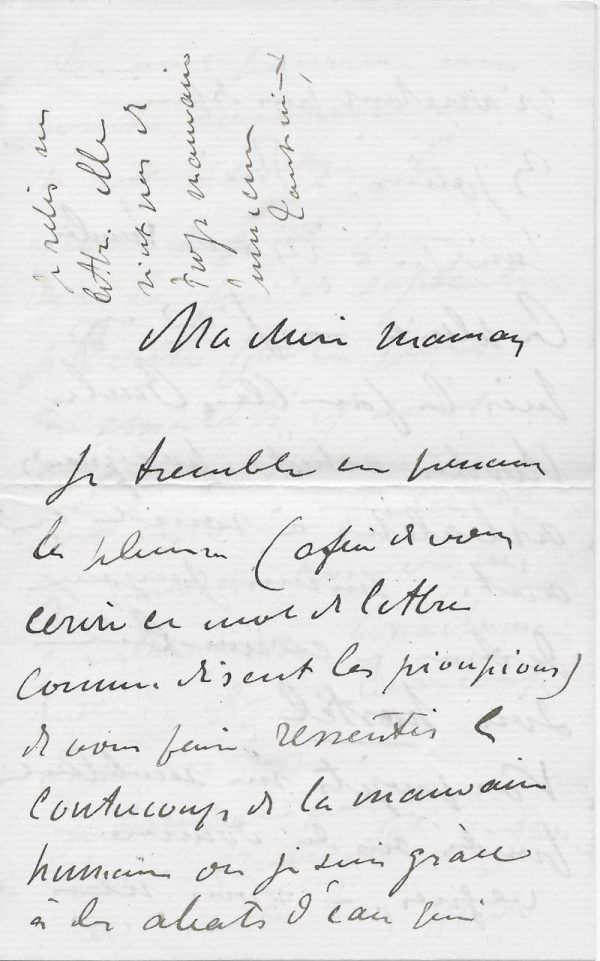 Je relis ma
lettre. elle
n'est pas de
trop mauvaise
humeur
Ma chère maman
Je tremble en prenant
la plume (afin de vous
écrire ce mot de lettre
comme disent les pioupious)
de vous faire ressentir le
contrecoup de la mauvaise
humeur où je suis grâce
à des abats d'eau qui